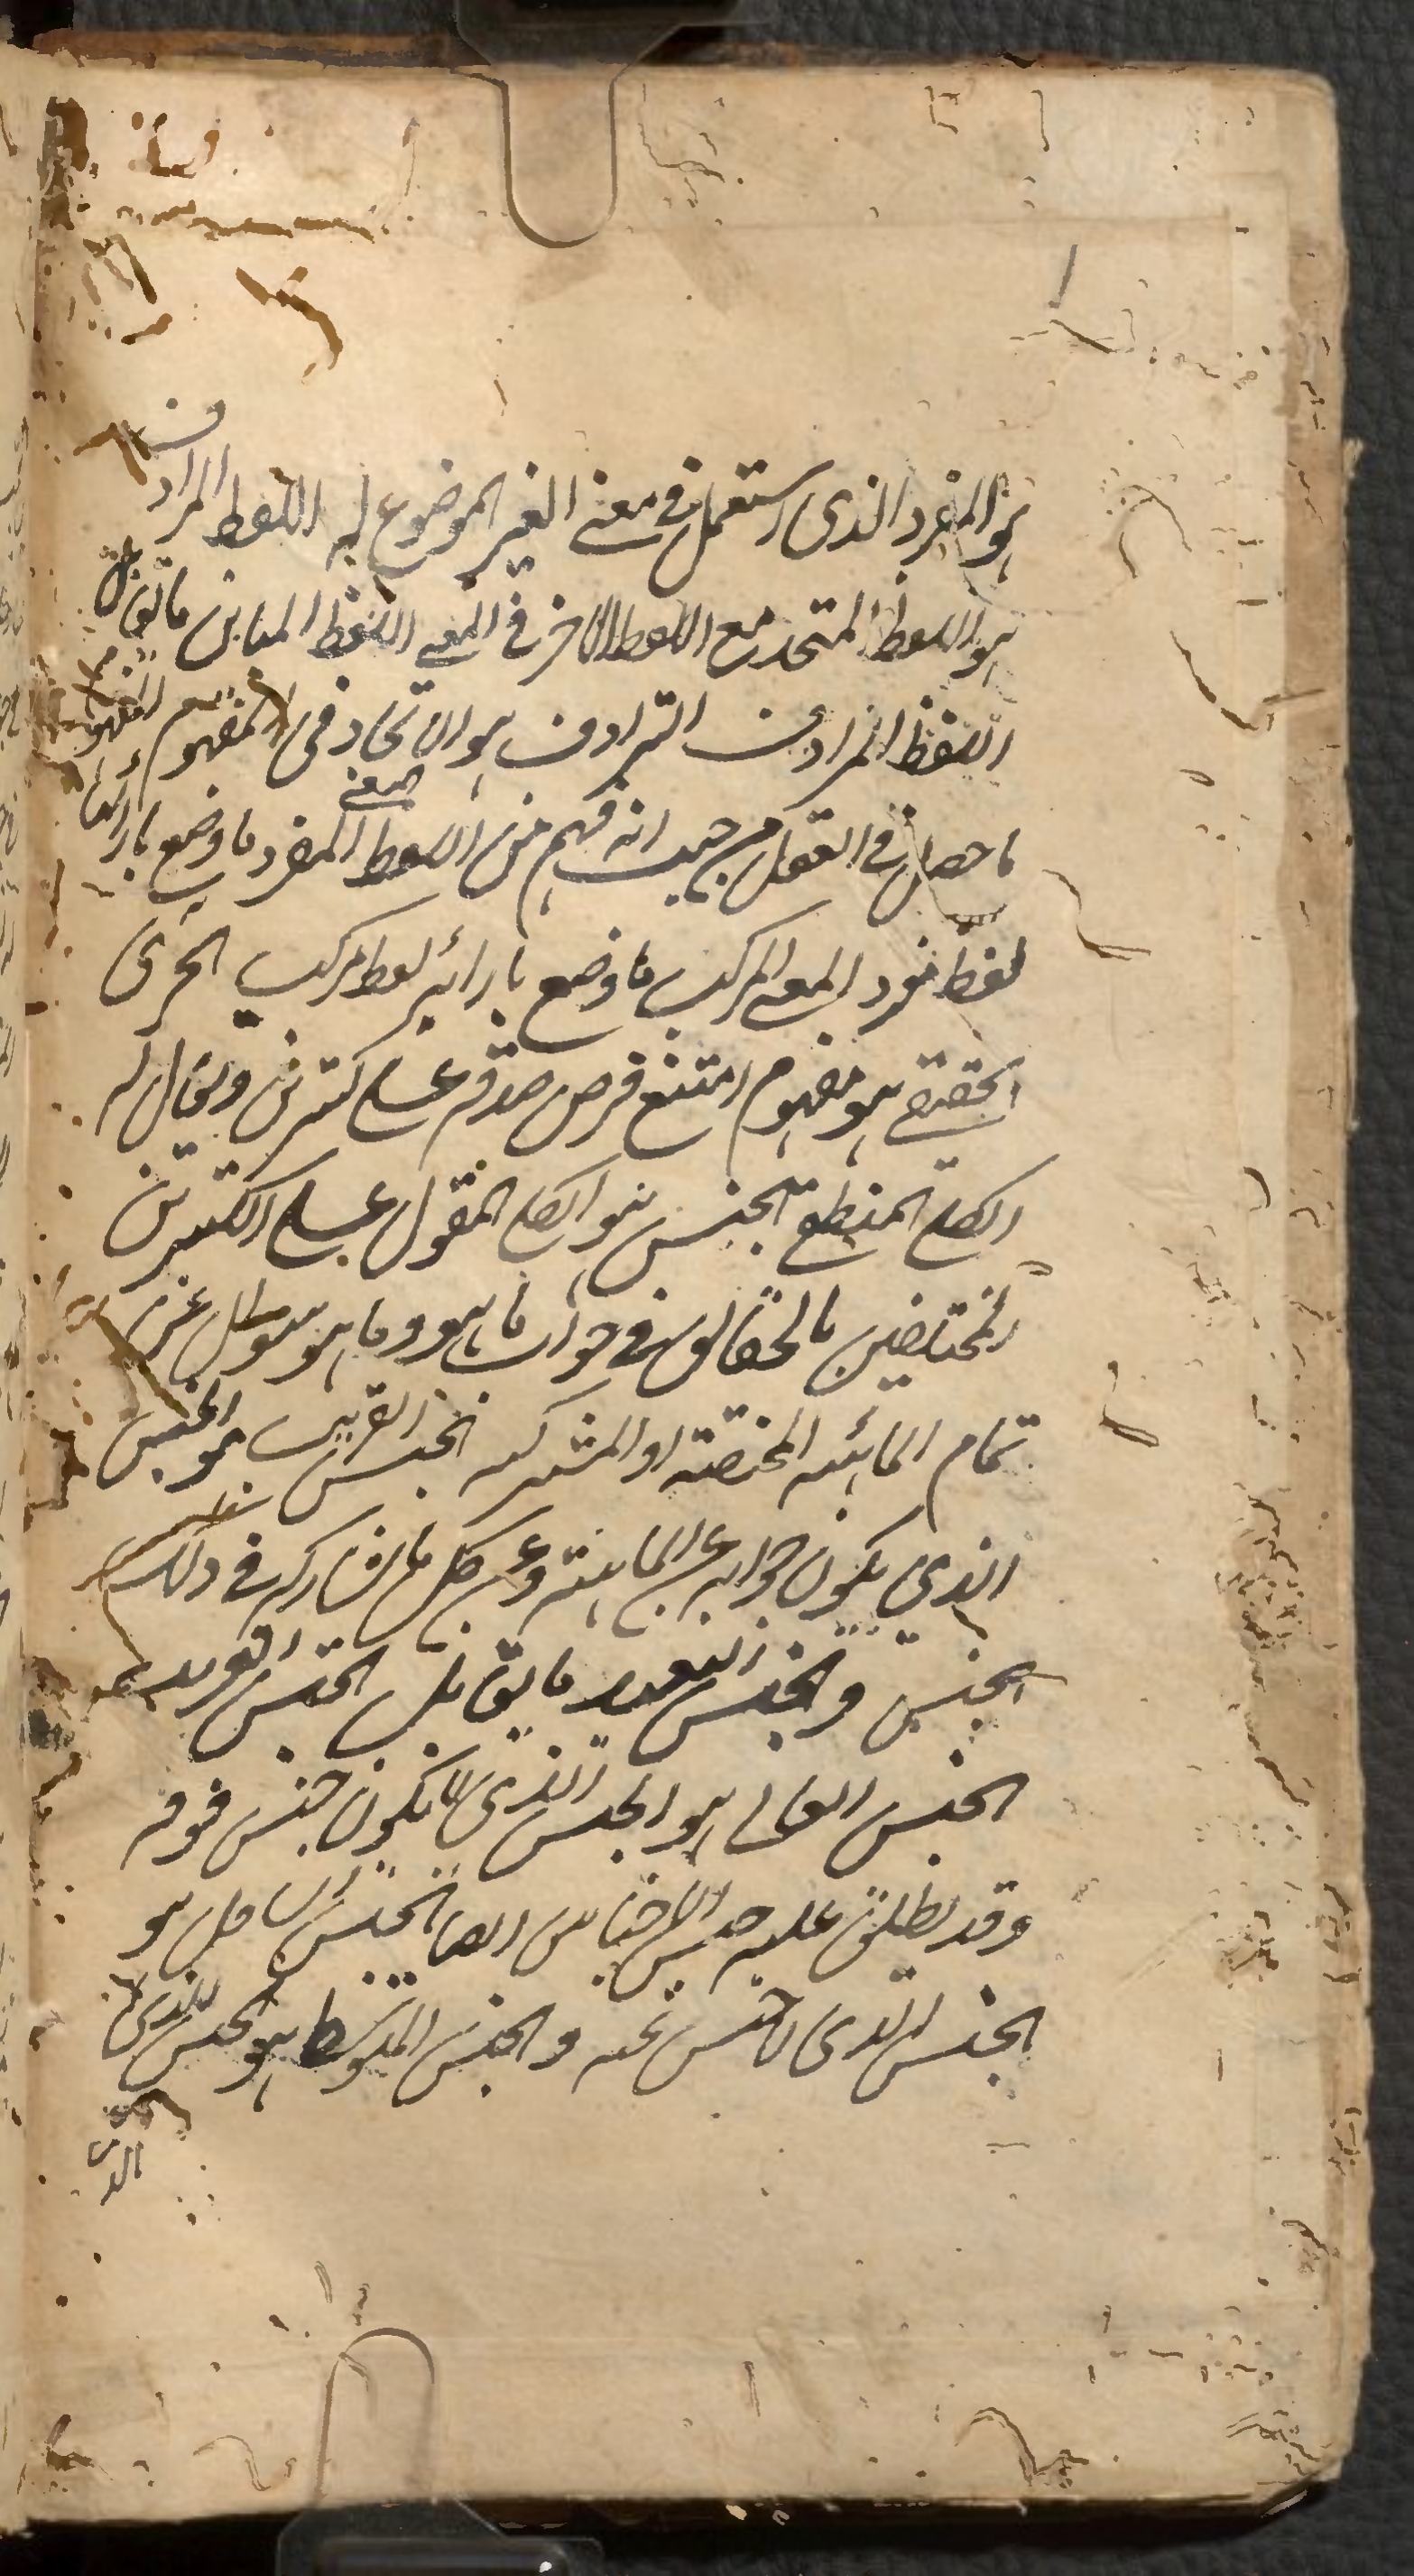 هو المفرد الذى استعمل فى معنى الغير الموضوع له اللفظ المرادف
هو اللفظ المتحد مع اللفظ الاخر فى المعنى اللفظ المباين ما يقابل
اللفظ المرادف الترادف هو الاتحاد فى المفهوم المفهوم
ما حصل فى العقل من حيث انه فهم من اللفظ المعنى المفرد ما وضع بازائه
لفظ مفرد المعنى المركب ما وضع بازائه لفظ مركب الجزئى
الحقيقى هو مفهوم امتنع فرض صدقه على كثيرين ويقال له
الكلى المنطقى الجنس هو الكلى المقول على الكثيرين
المختلفين بالحقائق فى جواب ما هو وما هو سؤال عن
تمام الماهية المختصة او المشتركة الجنس القريب هو الجنس
الذى يكون جوابه عن الماهية وعن كل ما يشاركه فى ذلك
الجنس والجنس البعيد ما يقابل الجنس القريب
الجنس العالى هو الجنس الذى لا يكون جنس فوقه
وقد يطلق عليه جنس الاجناس ايضا الجنس السافل هو
الجنس الذى لا جنس تحته والجنس المتوسط هو الجنس الذى
الذى